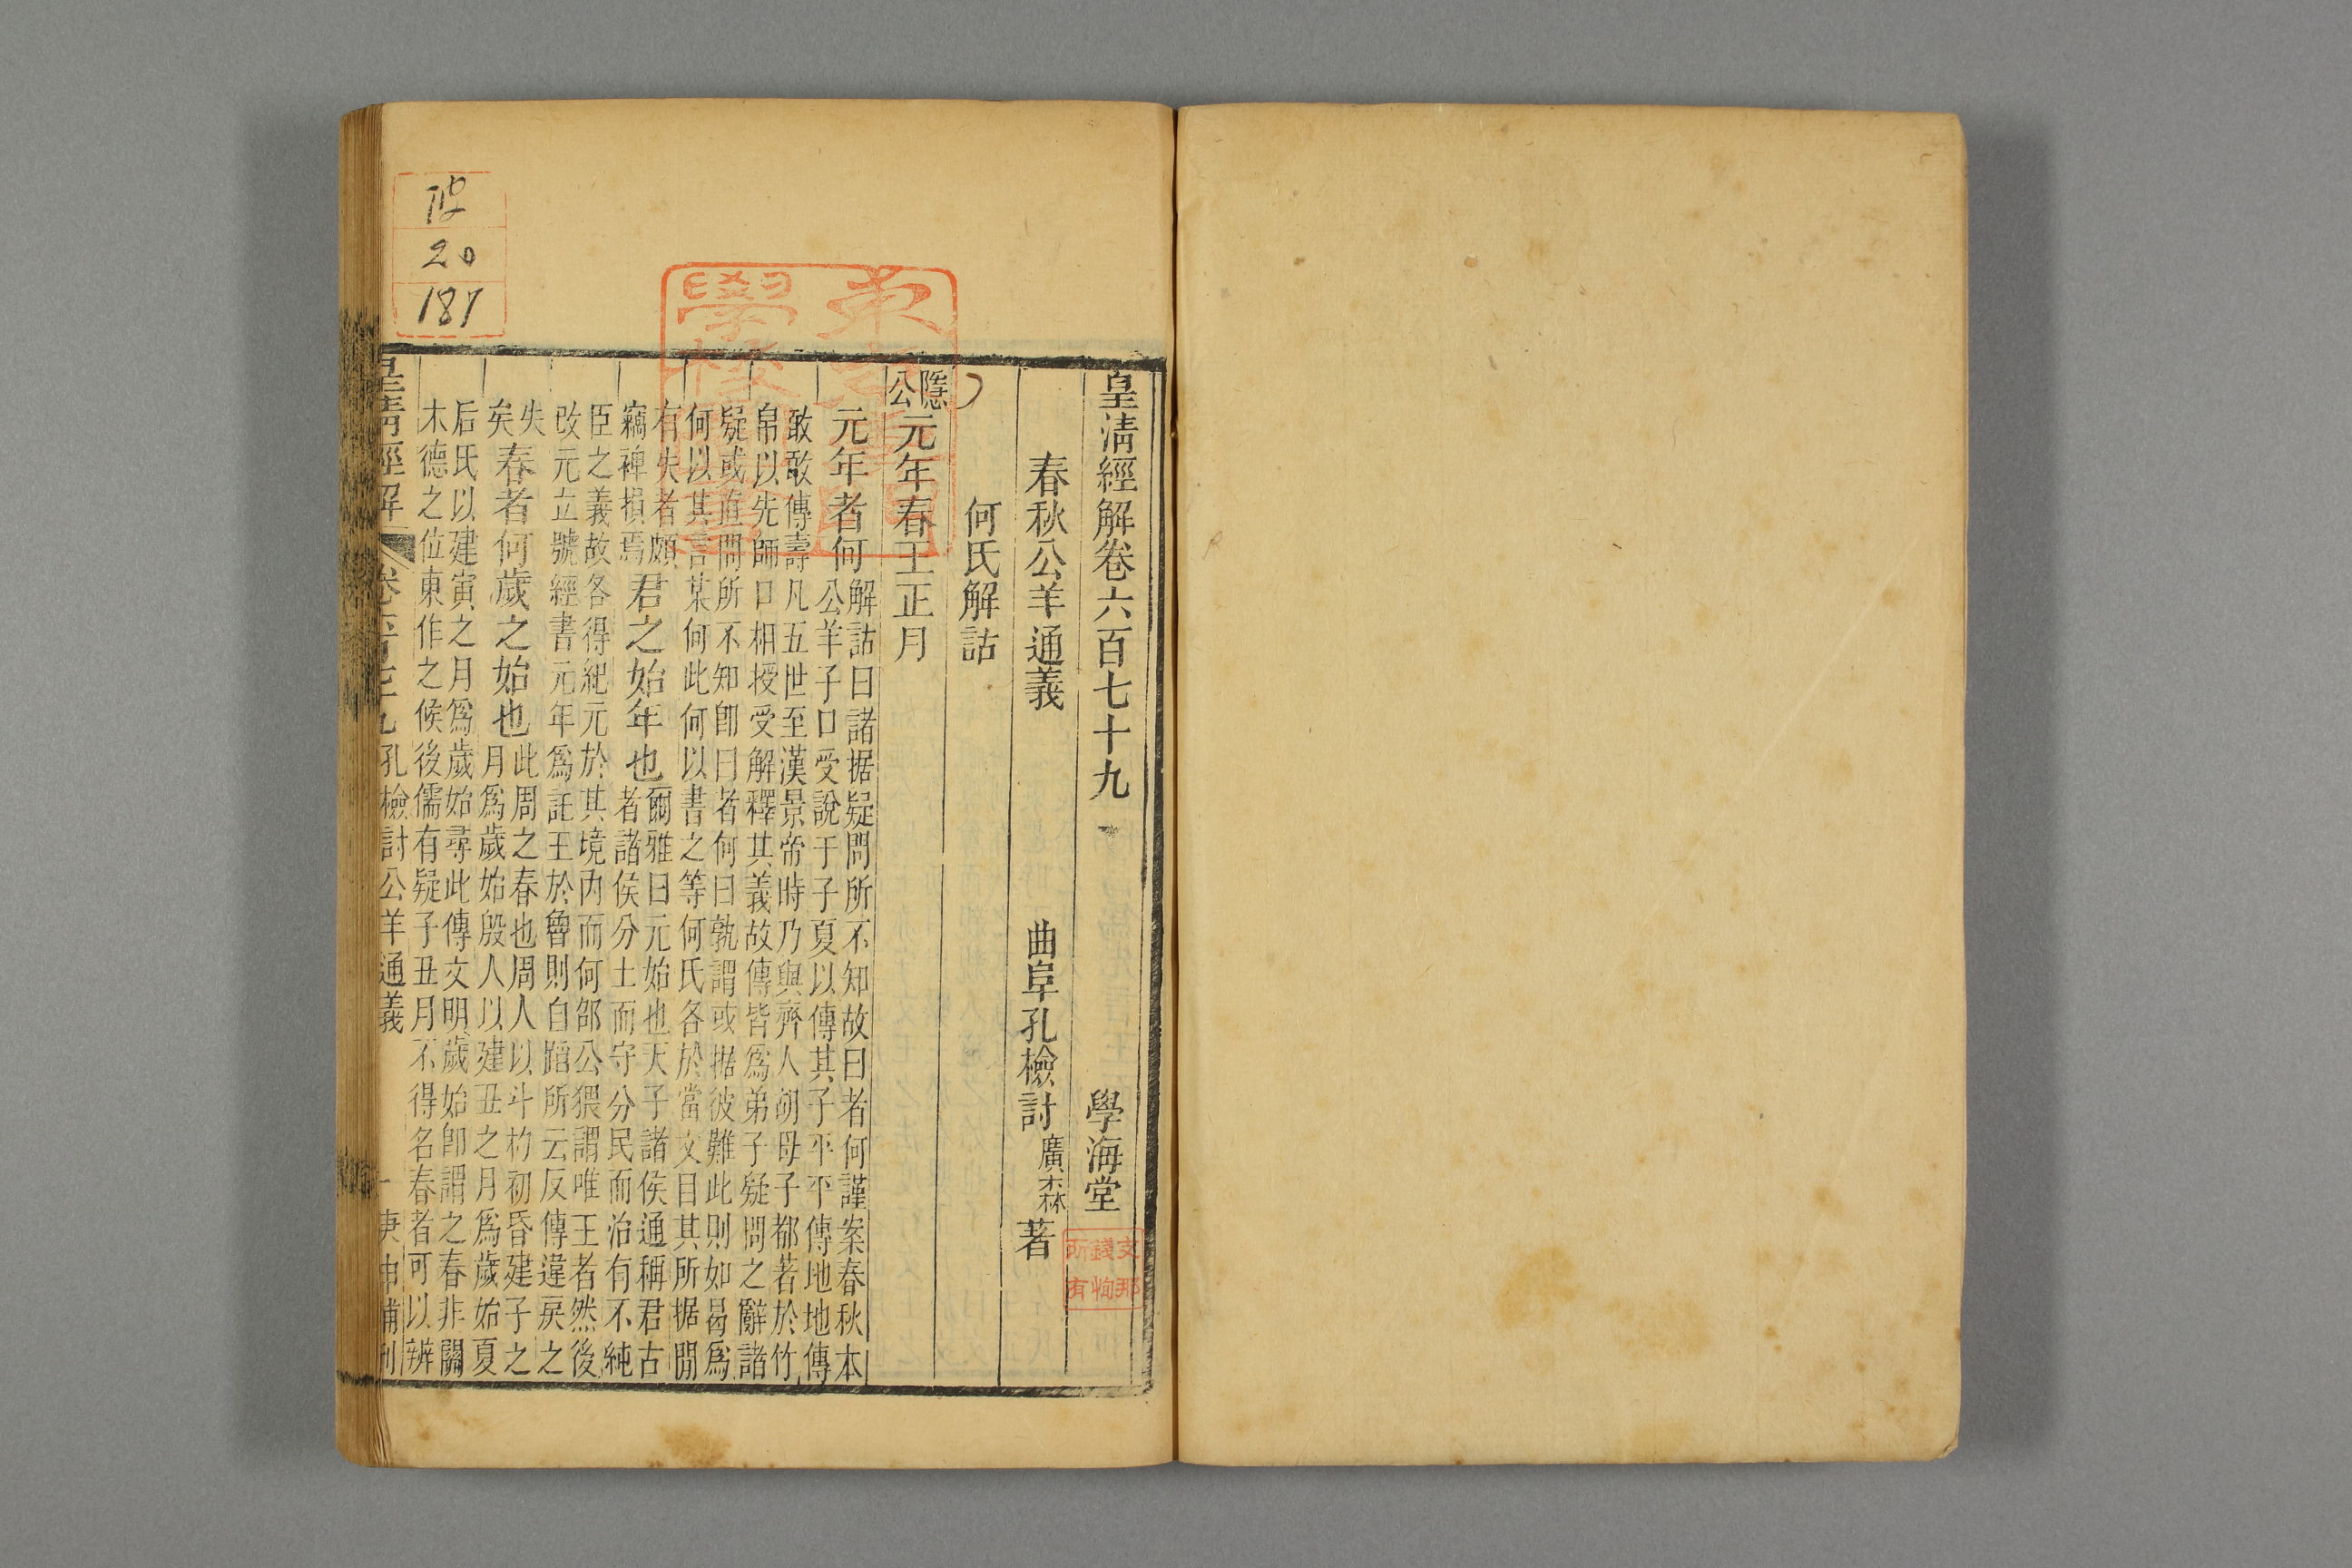 皇淸經解卷六百七十九 學海堂
春秋公羊通義 曲阜孔檢討廣森著
何氏解詁
隱公元年春王正月
元年者何
解詁曰諸据疑問所不知故曰者何謹案春秋本
公羊子口受說于子夏以傳其子平平傳地地傳
敢敢傳壽凡五世至漢景帝時乃與齊人胡母子都著於竹
帛以先師口相授受解釋其義故傳皆爲弟子疑問之辭諸
疑或直問所不知卽曰者何曰孰謂或据彼難此則如曷爲
何以其言某何此何以書之等何氏各於當文目其所据閒
有失者頗
竊裨損焉
君之始年也
爾雅曰元始也天子諸侯通稱君古
者諸侯分土而守分民而治有不純
臣之義故各得紀元於其境内而何邵公猥謂唯王者然後
改元立號經書元年爲託王於魯則自蹈所云反傳違戾之
失
矣
春者何歲之始也
此周之春也周人以斗杓初昏建子之
月爲歲始殷人以建丑之月爲歲始夏
后氏以建寅之月爲歲始尋此傳文明歲始卽謂之春非關
木德之位東作之候後儒有疑子丑月不得名春者可以辨
皇淸經解 卷六百七十九 孔檢討公羊通義 一 庚申補刊
支那
錢恂
所有
20
187